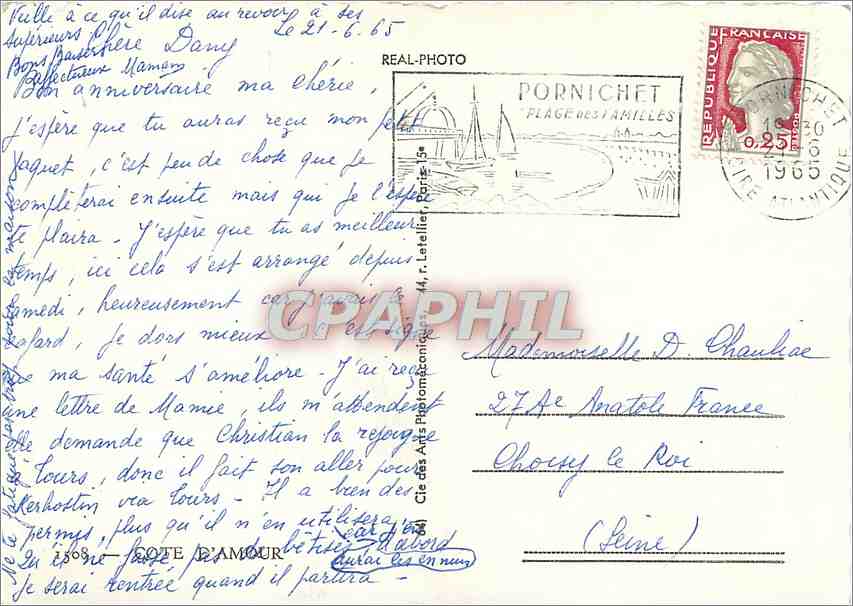 Veille à ce qu'il dise au revoir à ses
supérieurs
Bons Baisers
Affectueux Maman
Le 21-6-65
Chère Dany
Bon anniversaire ma chérie,
j'espère que tu auras reçu mon petit
paquet, c'est peu de chose que je
complèterai ensuite mais qui je l'espère
te plaira - J'espère que tu as meilleur
temps, ici cela s'est arrangé depuis
Samedi, heureusement car j'avais le
cafard, je dors mieux c'est signe
que ma santé s'améliore - J'ai reçu
une lettre de Mamie, ils m'attendent
elle demande que Christian la rejoigne
à Tours, donc il fait son aller pour
Kerhostin via Tours - Il a bien des
permis, plus qu'il n'en utilisera,
Qu'il ne fasse pas de bêtises car d'abord
aurai les ennuis
je serai rentrée quand il partira -
Ne te fatigue pas trop
maison
1508 - COTE D'AMOUR
REAL-PHOTO
Cie des Arts Photomécaniques, 44, r. Letellier, Paris-15e
PORNICHET
PLAGE DES FAMILLES
REPUBLIQUE FRANCAISE
0,25
PORNICHET
18 30
21-6
1965
LOIRE ATLANTIQUE
CPAPHIL
Mademoiselle D. Chauliac
27 Ae Anatole France
Choisy le Roi
(Seine)